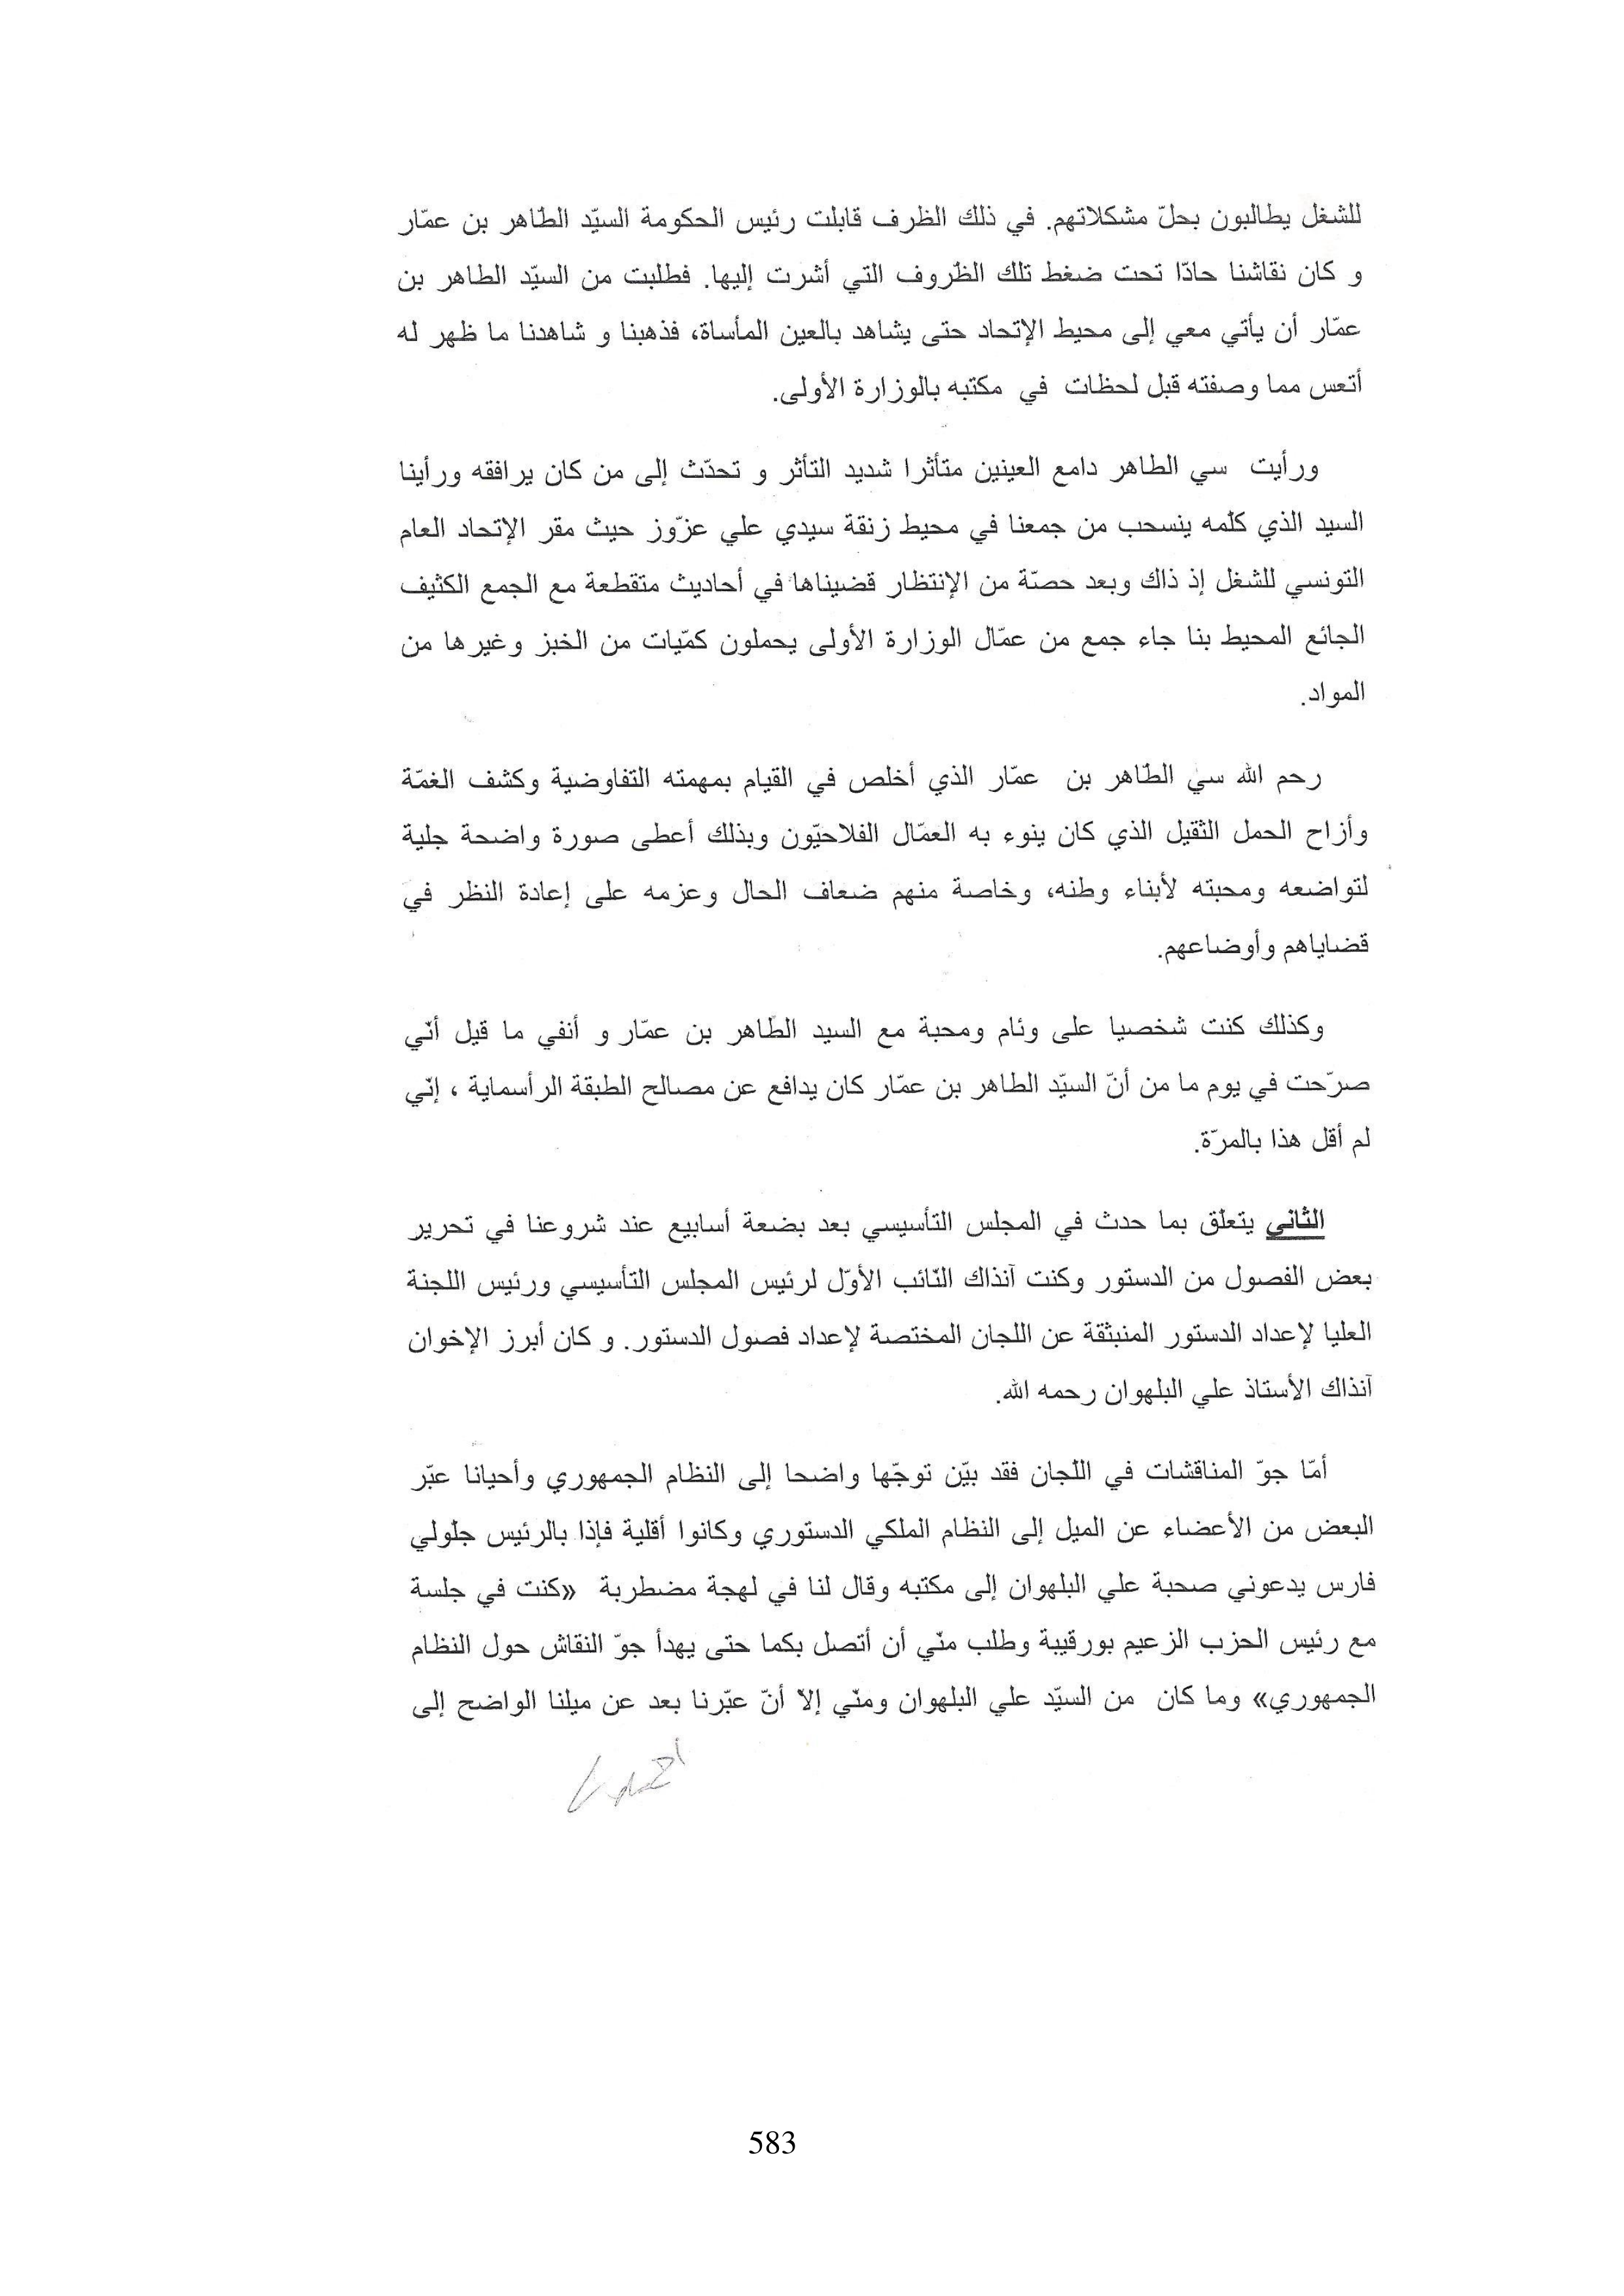 للشغل يطالبون بحلّ مشكلاتهم. في ذلك الظرف قابلت رئيس الحكومة السيّد الطّاهر بن عمّار
و كان نقاشنا حادّا تحت ضغط تلك الظّروف التي أشرت إليها. فطلبت من السيّد الطاهر بن
عمّار أن يأتي معي إلى محيط الإتحاد حتى يشاهد بالعين المأساة، فذهبنا و شاهدنا ما ظهر له
أتعس مما وصفته قبل لحظات في مكتبه بالوزارة الأولى.
ورأيت سي الطاهر دامع العينين متأثرا شديد التأثر و تحدّث إلى من كان يرافقه ورأينا
السيد الذي كلّمه ينسحب من جمعنا في محيط زنقة سيدي علي عزّوز حيث مقر الإتحاد العام
التونسي للشغل إذ ذاك وبعد حصّة من الإنتظار قضيناها في أحاديث متقطعة مع الجمع الكثيف
الجائع المحيط بنا جاء جمع من عمّال الوزارة الأولى يحملون كمّيات من الخبز وغيرها من
المواد.
رحم الله سي الطّاهر بن عمّار الذي أخلص في القيام بمهمته التفاوضية وكشف الغمّة
وأزاح الحمل الثقيل الذي كان ينوء به العمّال الفلاحيّون وبذلك أعطى صورة واضحة جلية
لتواضعه ومحبته لأبناء وطنه، وخاصة منهم ضعاف الحال وعزمه على إعادة النظر في
قضاياهم وأوضاعهم.
وكذلك كنت شخصيا على وئام ومحبة مع السيد الطّاهر بن عمّار و أنفي ما قيل أنّي
صرّحت في يوم ما من أنّ السيّد الطاهر بن عمّار كان يدافع عن مصالح الطبقة الرأسماية ، إنّي
لم أقل هذا بالمرّة.
الثّاني يتعلّق بما حدث في المجلس التأسيسي بعد بضعة أسابيع عند شروعنا في تحرير
بعض الفصول من الدستور وكنت آنذاك النّائب الأوّل لرئيس المجلس التأسيسي ورئيس اللجنة
العليا لإعداد الدستور المنبثقة عن اللجان المختصة لإعداد فصول الدستور. و كان أبرز الإخوان
آنذاك الأستاذ علي البلهوان رحمه الله.
أمّا جوّ المناقشات في اللّجان فقد بيّن توجّها واضحا إلى النظام الجمهوري وأحيانا عبّر
البعض من الأعضاء عن الميل إلى النظام الملكي الدستوري وكانوا أقلية فإذا بالرئيس جلّولي
فارس يدعوني صحبة علي البلهوان إلى مكتبه وقال لنا في لهجة مضطربة «كنت في جلسة
مع رئيس الحزب الزعيم بورقيبة وطلب منّي أن أتصل بكما حتى يهدأ جوّ النقاش حول النظام
الجمهوري» وما كان من السيّد علي البلهوان ومنّي إلا أنّ عبّرنا بعد عن ميلنا الواضح إلى
583